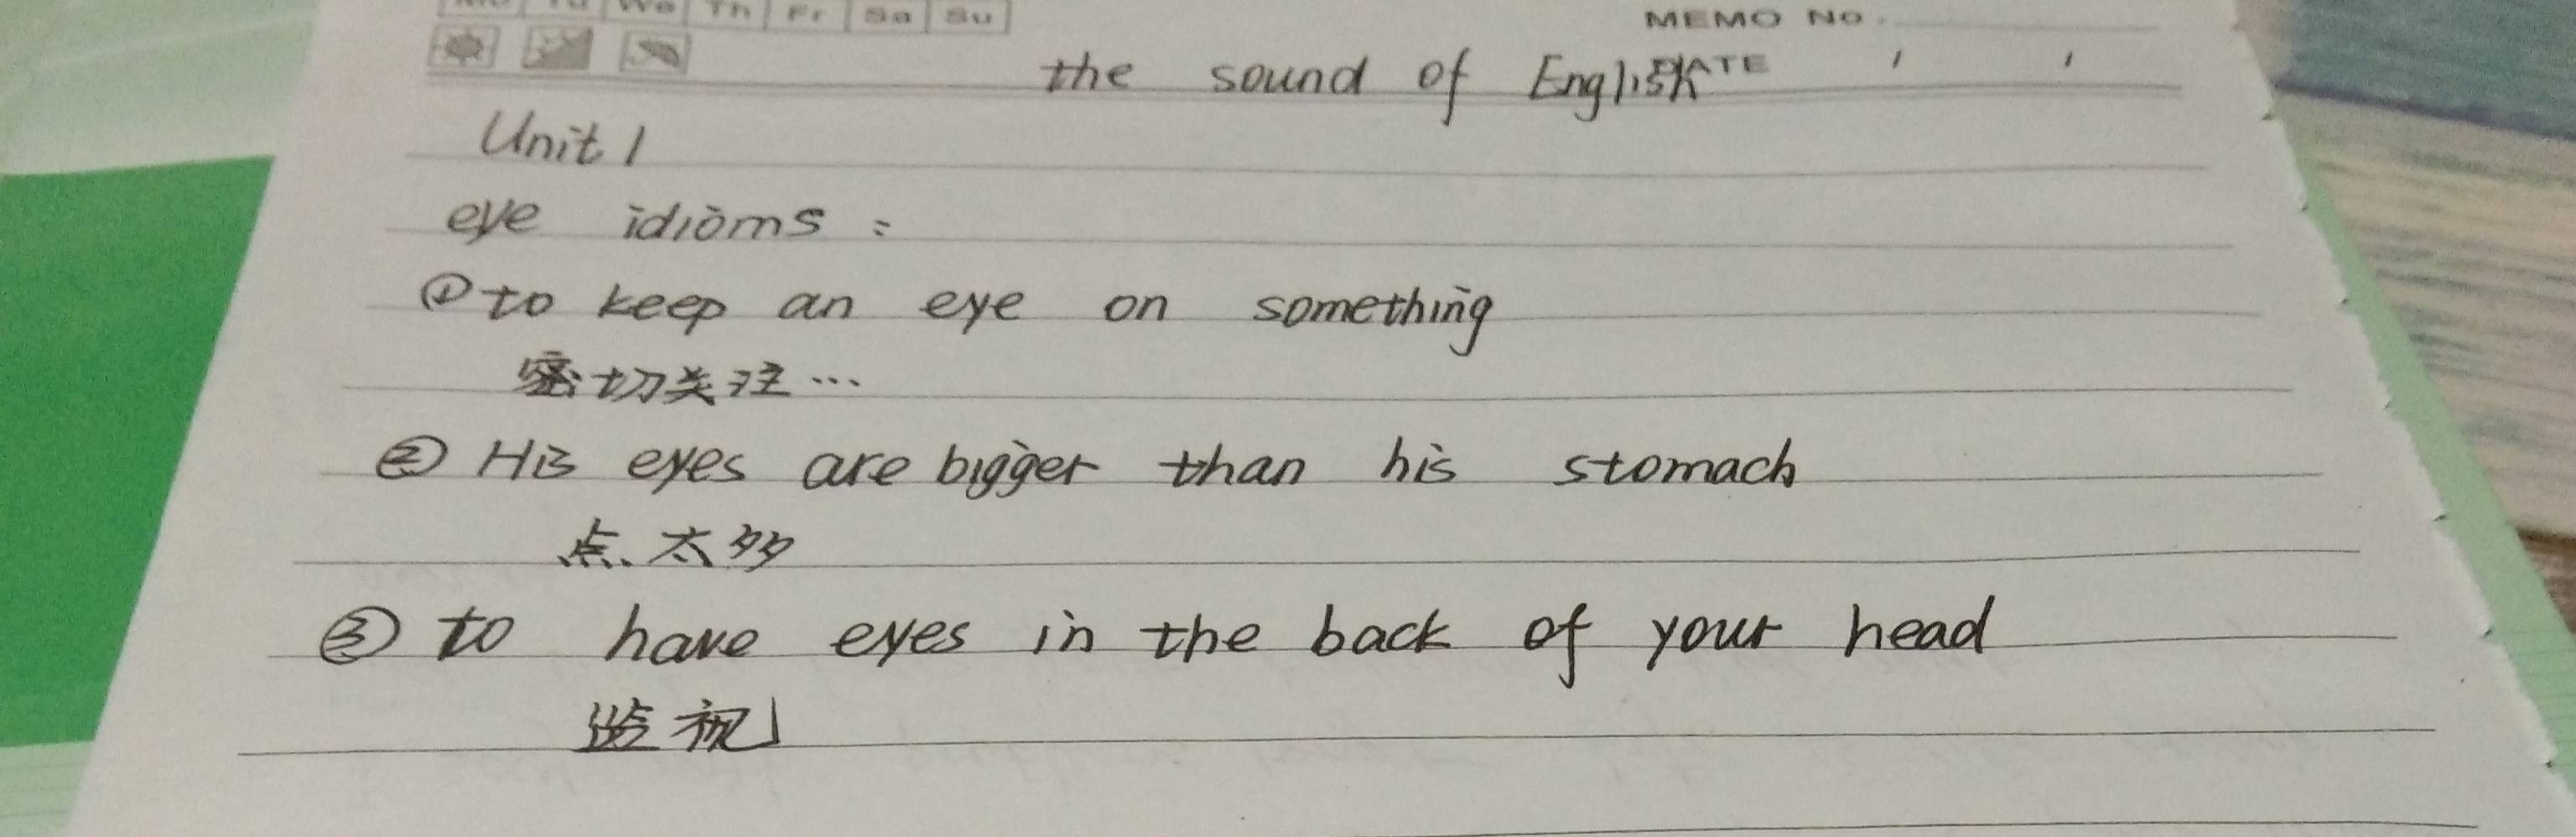 Tu We Th Fr Sa Su
MEMO No.
DATE / /
the sound of English
Unit 1
eye idioms:
①to keep an eye on something
密切关注…
② His eyes are bigger than his stomach
点太多
③ to have eyes in the back of your head
监视